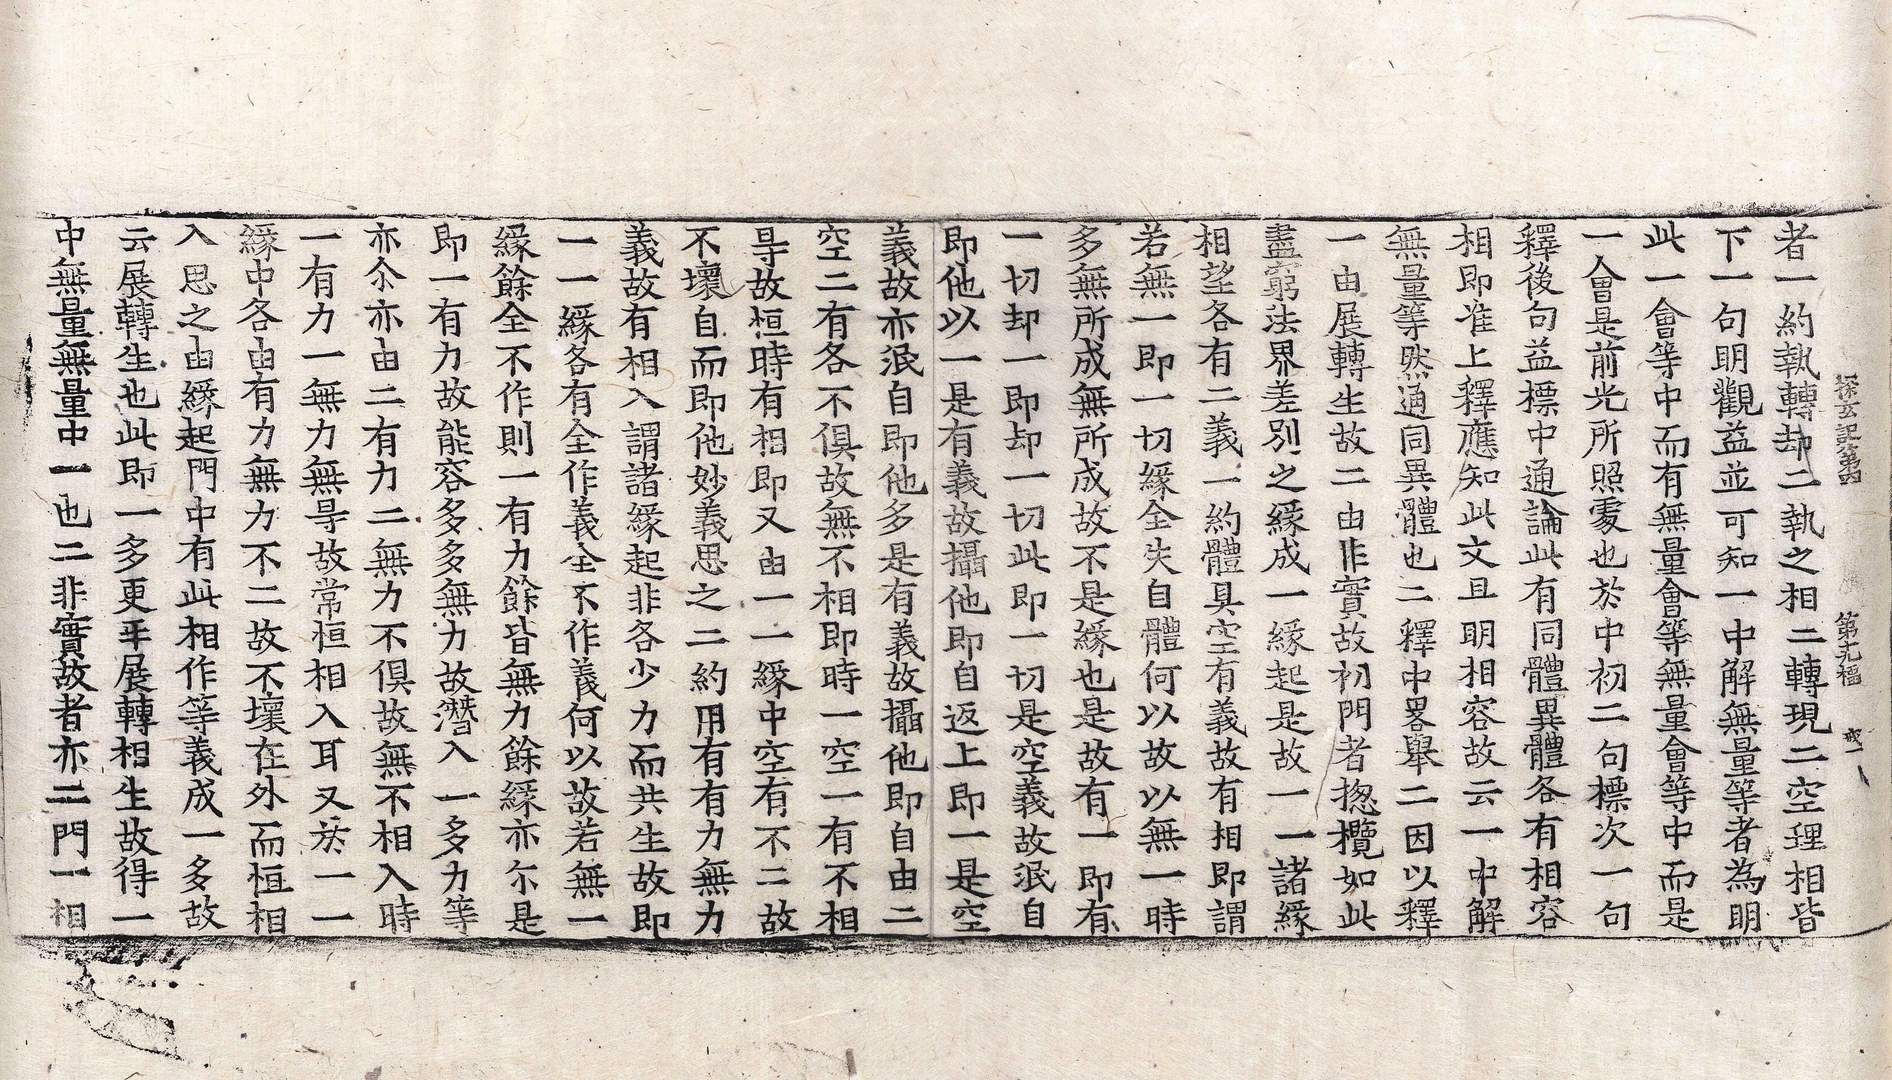 探玄記第四 第九幅 戒一
者一約執轉却二執之相二轉現二空理相皆
下一句明觀益並可知一中解無量等者為明
此一會等中而有無量會等無量會等中而是
一會是前光所照䖏也於中初二句標次一句
釋後句益標中通論此有同體異體各有相容
相即准上釋應知此文且明相容故云一中解
無量等然通同異體也二釋中畧舉二因以釋
一由展轉生故二由非實故初門者揔攬如此
盡窮法界差別之緣成一緣起是故一一諸緣
相望各有二義一約體具空有義故有相即謂
若無一即一切緣全失自體何以故以無一時
多無所成無所成故不是緣也是故有一即有
一切却一即却一切此即一切是空義故泯自
即他以一是有義故攝他即自返上即一是空
義故亦泯自即他多是有義故攝他即自由二
空二有各不俱故無不相即時一空一有不相
㝵故桓時有相即又由一一緣中空有不二故
不壞自而即他妙義思之二約用有有力無力
義故有相入謂諸緣起非各少力而共生故即
一一緣各有全作義全不作義何以故若無一
緣餘全不作則一有力餘皆無力餘緣亦尒是
即一有力故能容多多無力故潛入一多力等
亦尒亦由二有力二無力不俱故無不相入時
一有力一無力無㝵故常桓相入耳又於一一
緣中各由有力無力不二故不壞在外而桓相
入思之由緣起門中有此相作等義成一多故
云展轉生也此即一多更乎展轉相生故得一
中無量無量中一也二非實故者亦二門一相